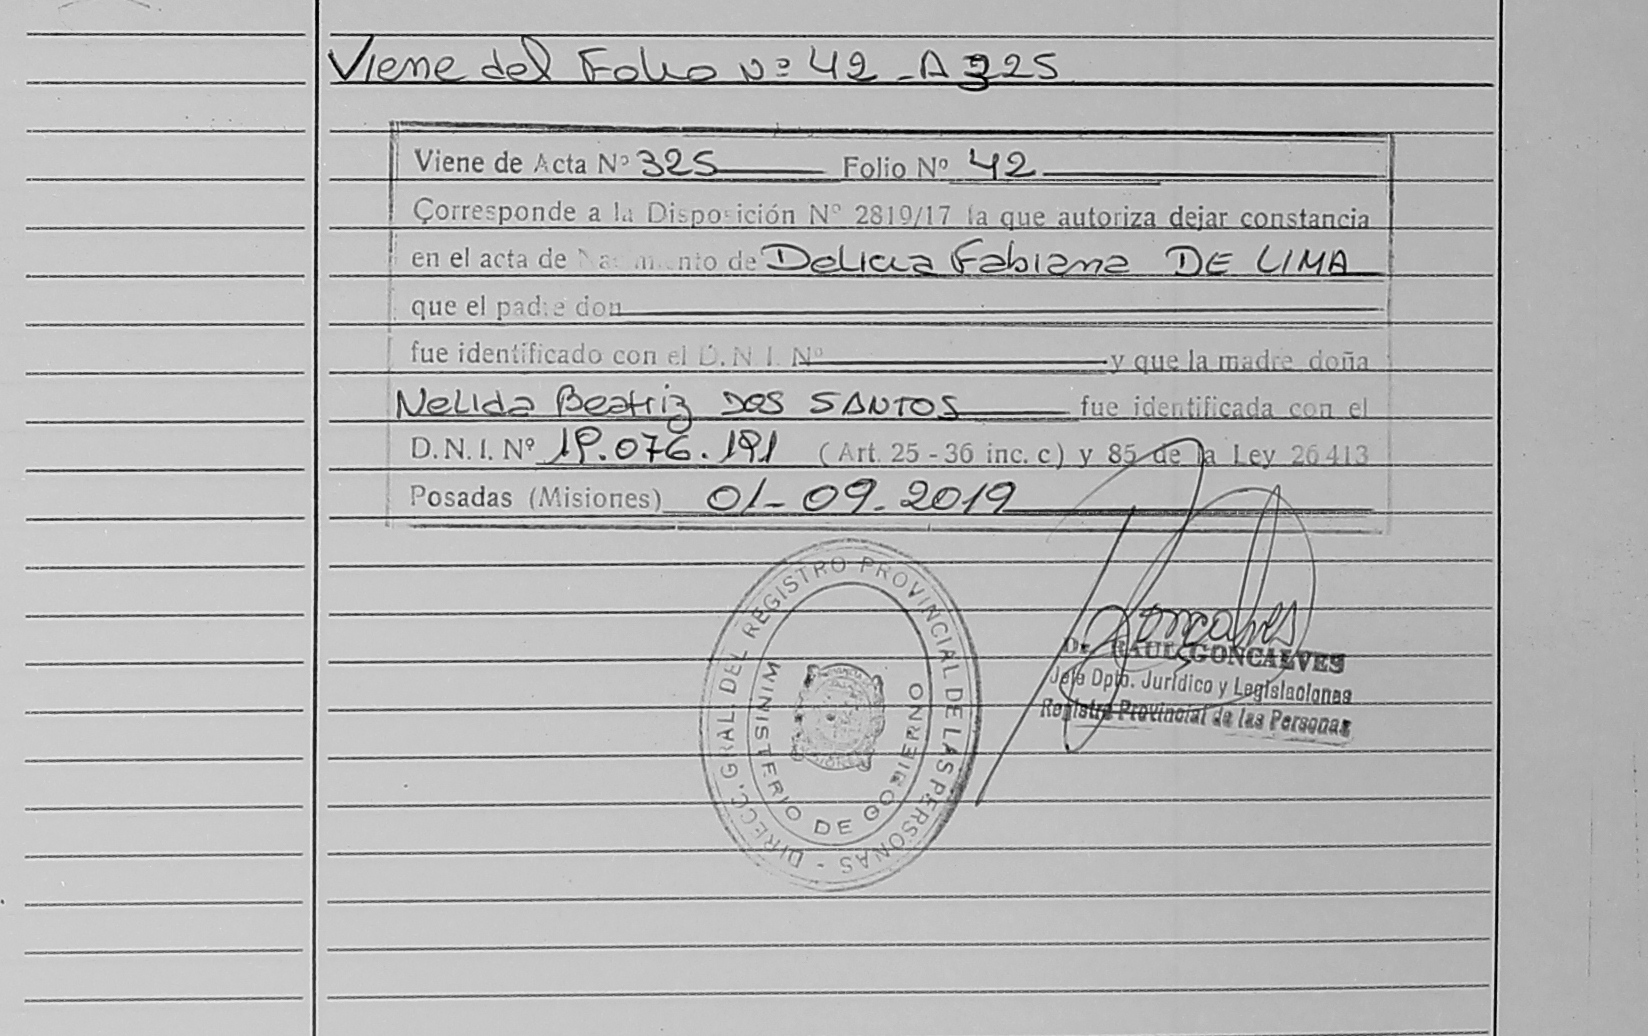 Viene del Folio Nº 42 - A 325
Viene de Acta Nº 325 Folio Nº 42
Corresponde a la Disposición Nº 2819/17 la que autoriza dejar constancia
en el acta de Nacimiento de Delicia Fabiana DE LIMA
que el padre don
fue identificado con el D.N.I. Nº y que la madre doña
Nelida Beatriz DOS SANTOS fue identificada con el
D.N.I. Nº 19.076.191 (Art. 25 - 36 inc. c) y 85 de la Ley 26413
Posadas (Misiones) 01-09.2019
DIRECC. GRAL. DEL REGISTRO PROVINCIAL DE LAS PERSONAS -
MINISTERIO DE GOBIERNO
Goncalves
Dr. RAUL GONCALVES
Jefe Dpto. Jurídico y Legislaciones
Registro Provincial de las Personas